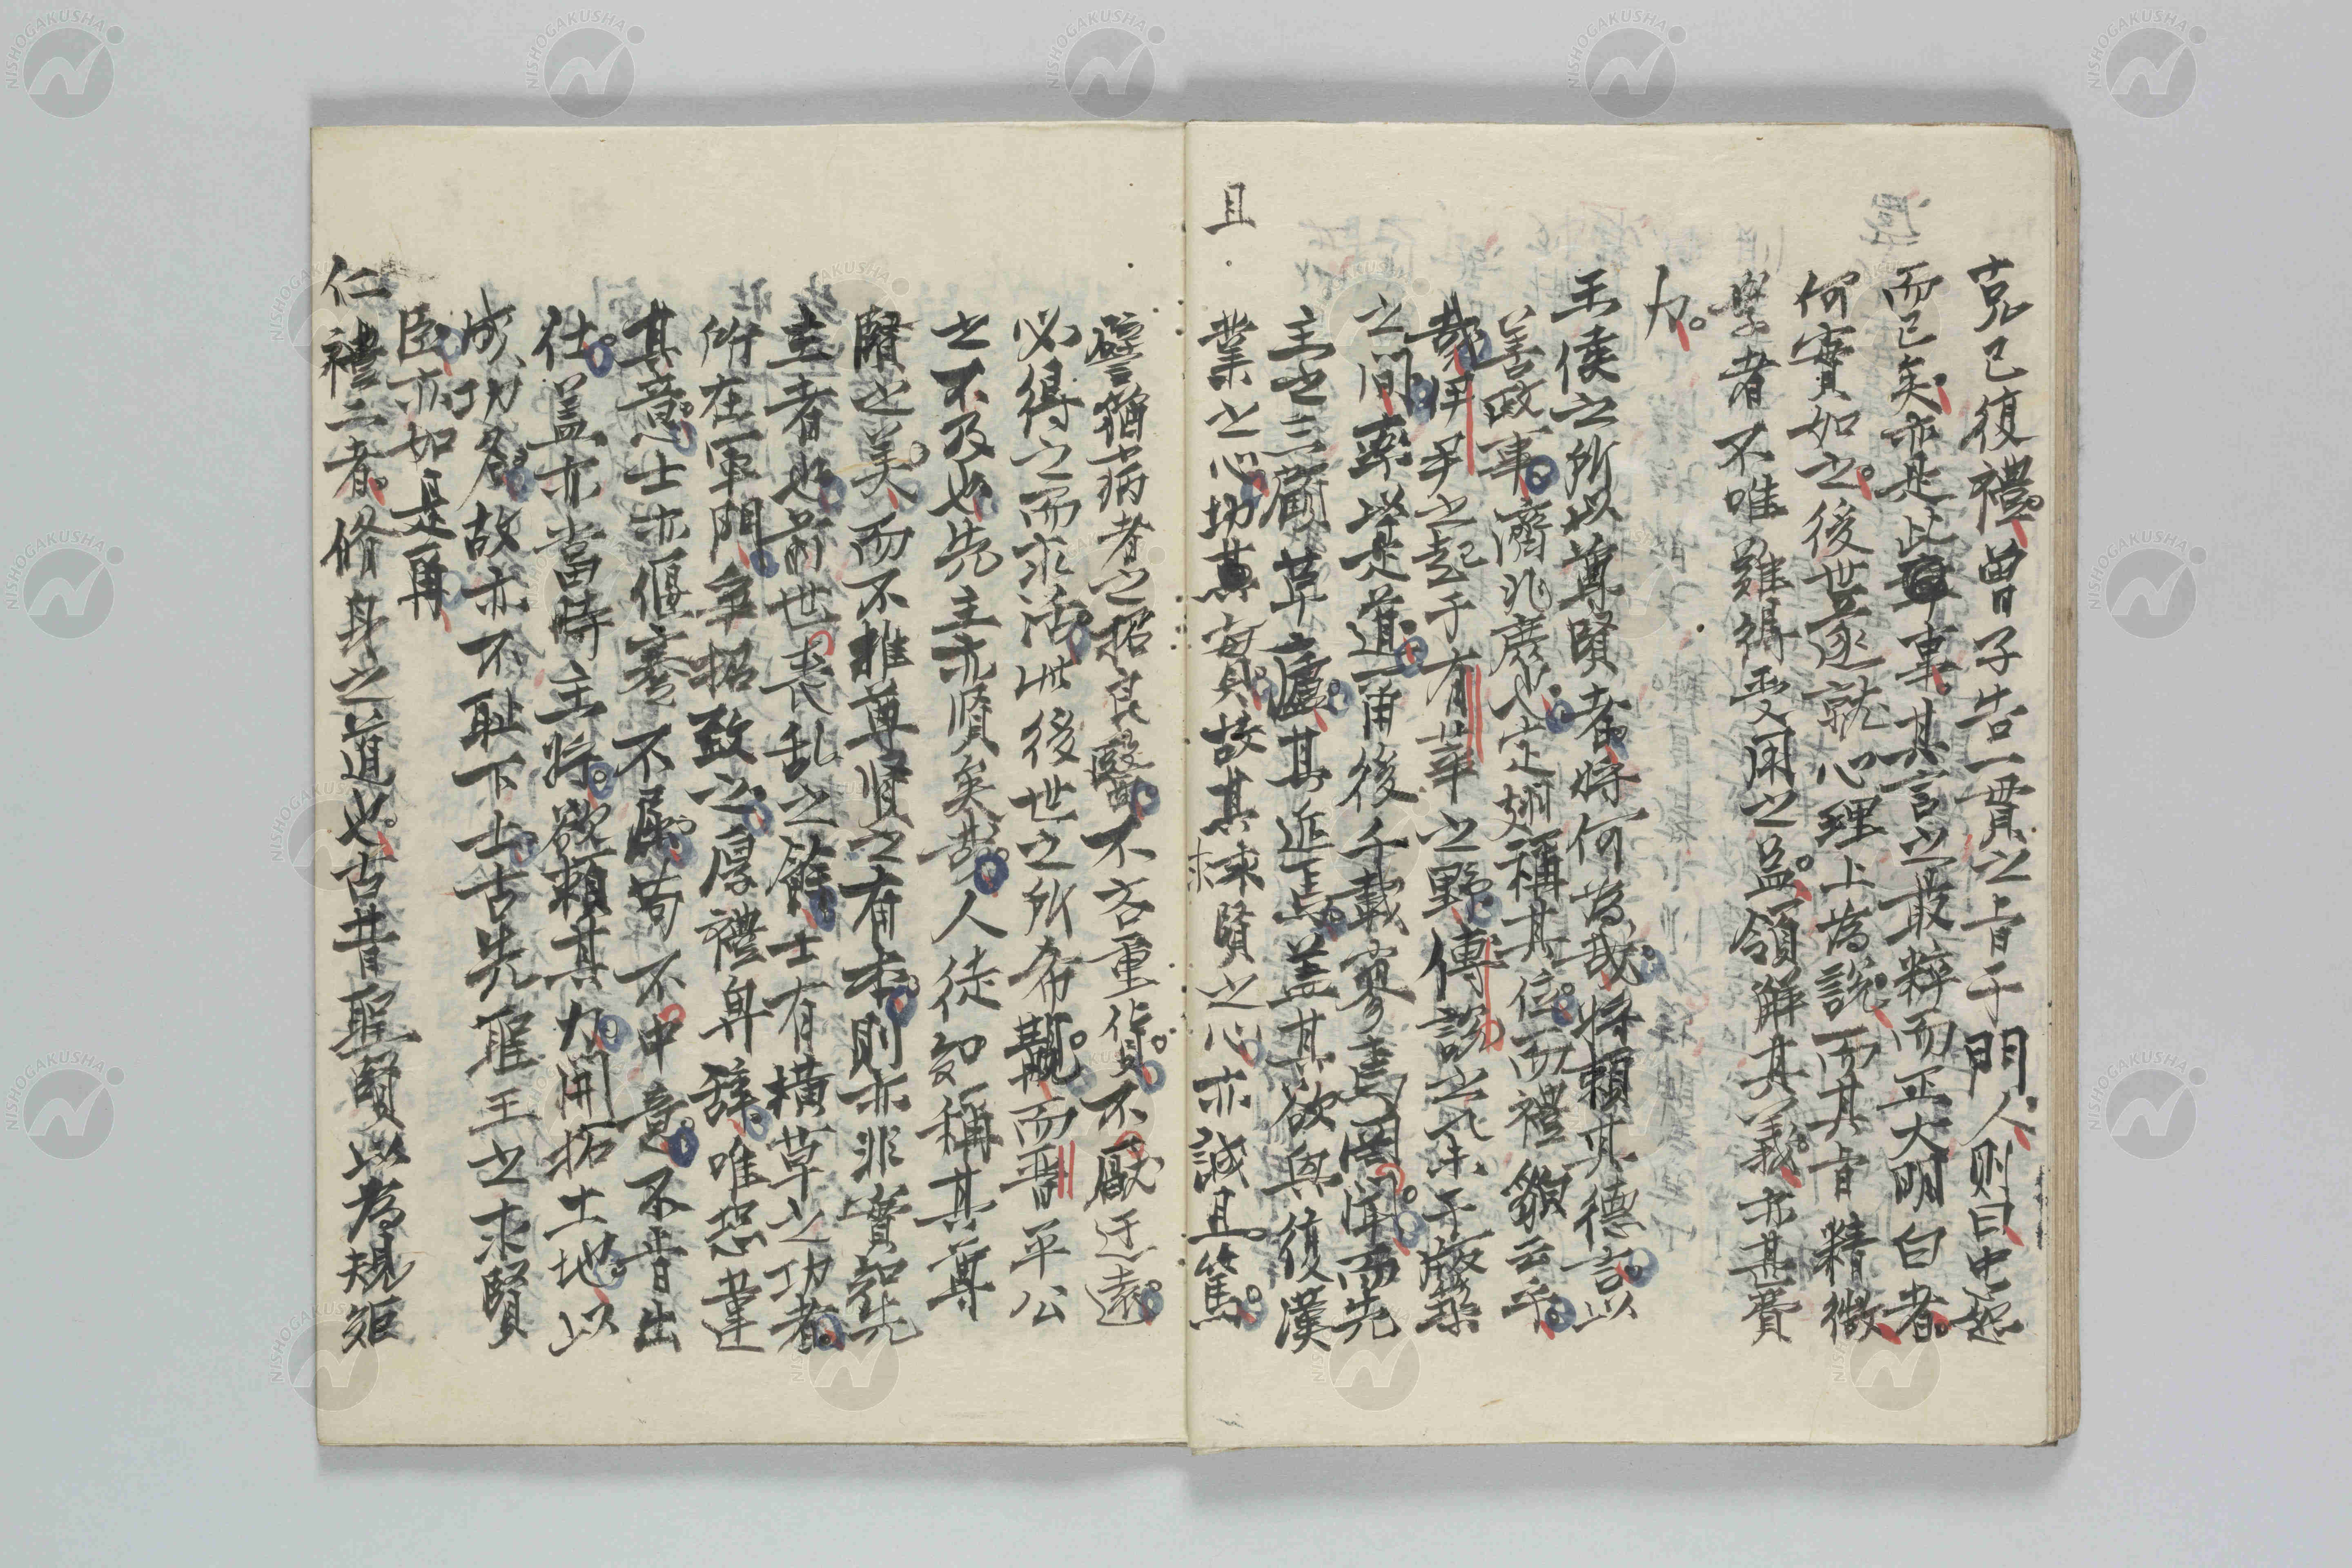 克己復禮曽子告一貫之旨于門人則曰忠恕
而已矣亦是此事其言之最粹而正大明白者
何實如之後世逐就心理上為説而其旨精微
學者不唯難得受用之益領解其義亦甚費
力
王侯之所以尊賢者将何為哉将頼其徳言以
善政事濟兆庶以定剏稱其位而禮貌云乎
哉伊尹之起于有莘之野傅説之采于版築
之間率是道耳後千載寥焉罔聞而先
主之三顧草廬其近焉蓋其欲興復漢
且
業之心切其實故其求賢之心亦誠且篤
譬猶病者之招良醫不吝重貨不厭迂遠
必得之而求活此後世之所希覯而晋平公
之不及也先主亦賢矣哉人徒知稱其尊
賢之美而不推尊賢之有本則亦非實知先
主者也前世喪乱之餘士有横草之功者
所在軍門争招致之厚禮卑辞唯恐違
其意士亦偃蹇不屈苟不中意不肯出
仕蓋亦當時主将欲頼其力開拓土地以
成功名故亦不耻下士古先聖王之求賢
臣亦如是耳
仁禮二者脩身之道也古昔聖賢以為規矩
NISHOGAKUSHA